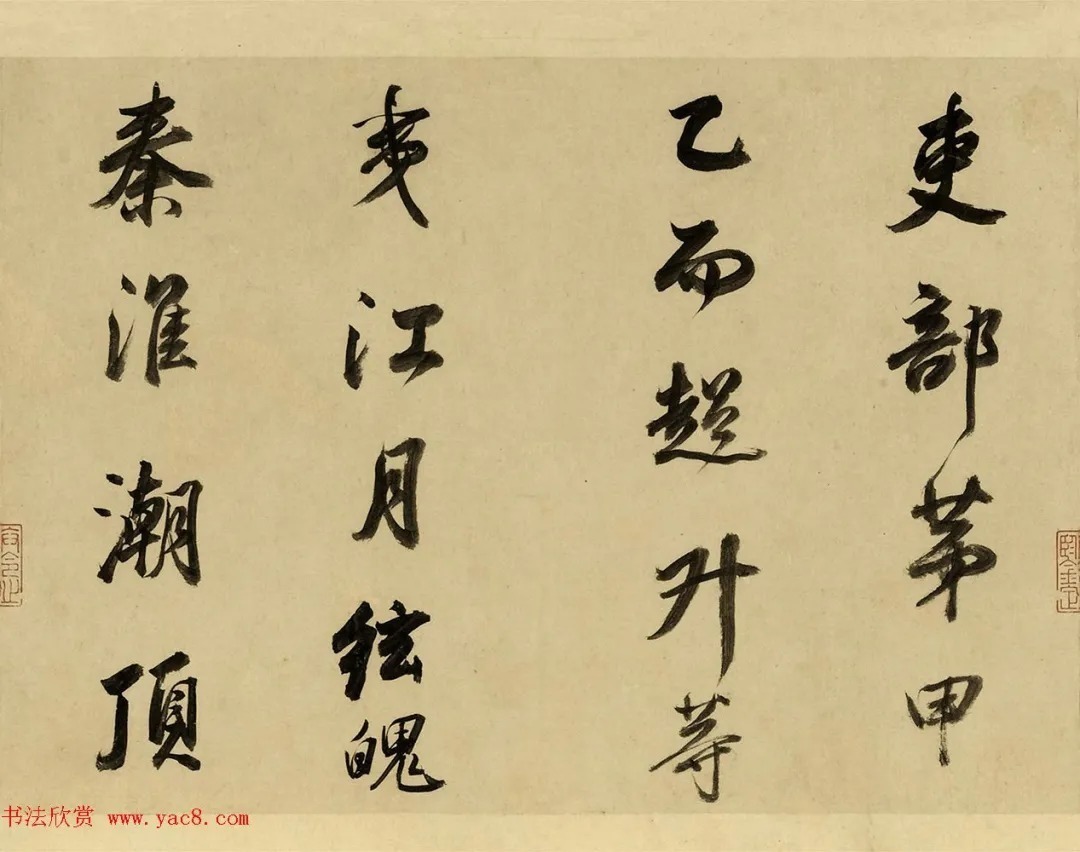 吏部第甲
乙而超升等
夷江月鉉魄
秦淮潮頂
书法欣赏 www.yac8.com